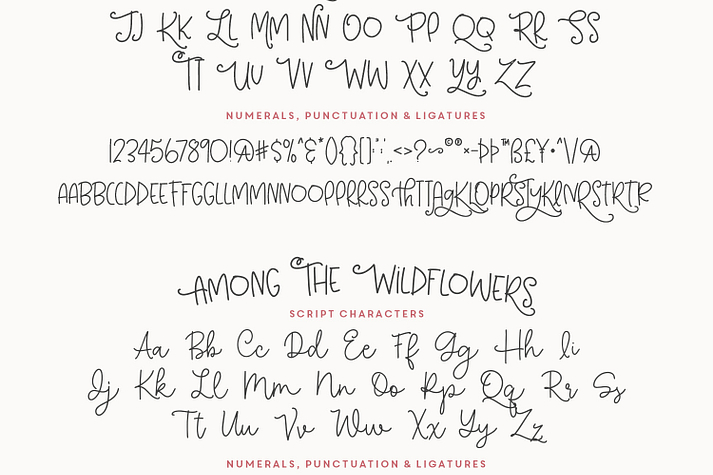 JJ KK LL MM NN OO PP QQ RR SS
TT UU VV WW XX YY ZZ
NUMERALS, PUNCTUATION & LIGATURES
1234567890!@#$%^&*(){}[]:;"',.<>?~©®×-Þþ™ß£¥•^\/@
AABBCCDDEEFFGGLLMMNNOOPPRRSSthTT
AMONG THE WILDFLOWERS
SCRIPT CHARACTERS
Aa Bb Cc Dd Ee Ff Gg Hh Ii
Jj Kk Ll Mm Nn Oo Pp Qq Rr Ss
Tt Uu Vv Ww Xx Yy Zz
NUMERALS, PUNCTUATION & LIGATURES